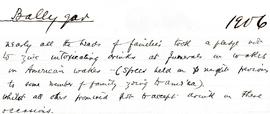 Ballygar 1906
nearly all the heads of families took a pledge not
to give intoxicating drinks at funerals or wakes
or American wakes - (spree held on night previous
to some member of family going to America).
whilst all other promised not to accept drink on these
occasions.